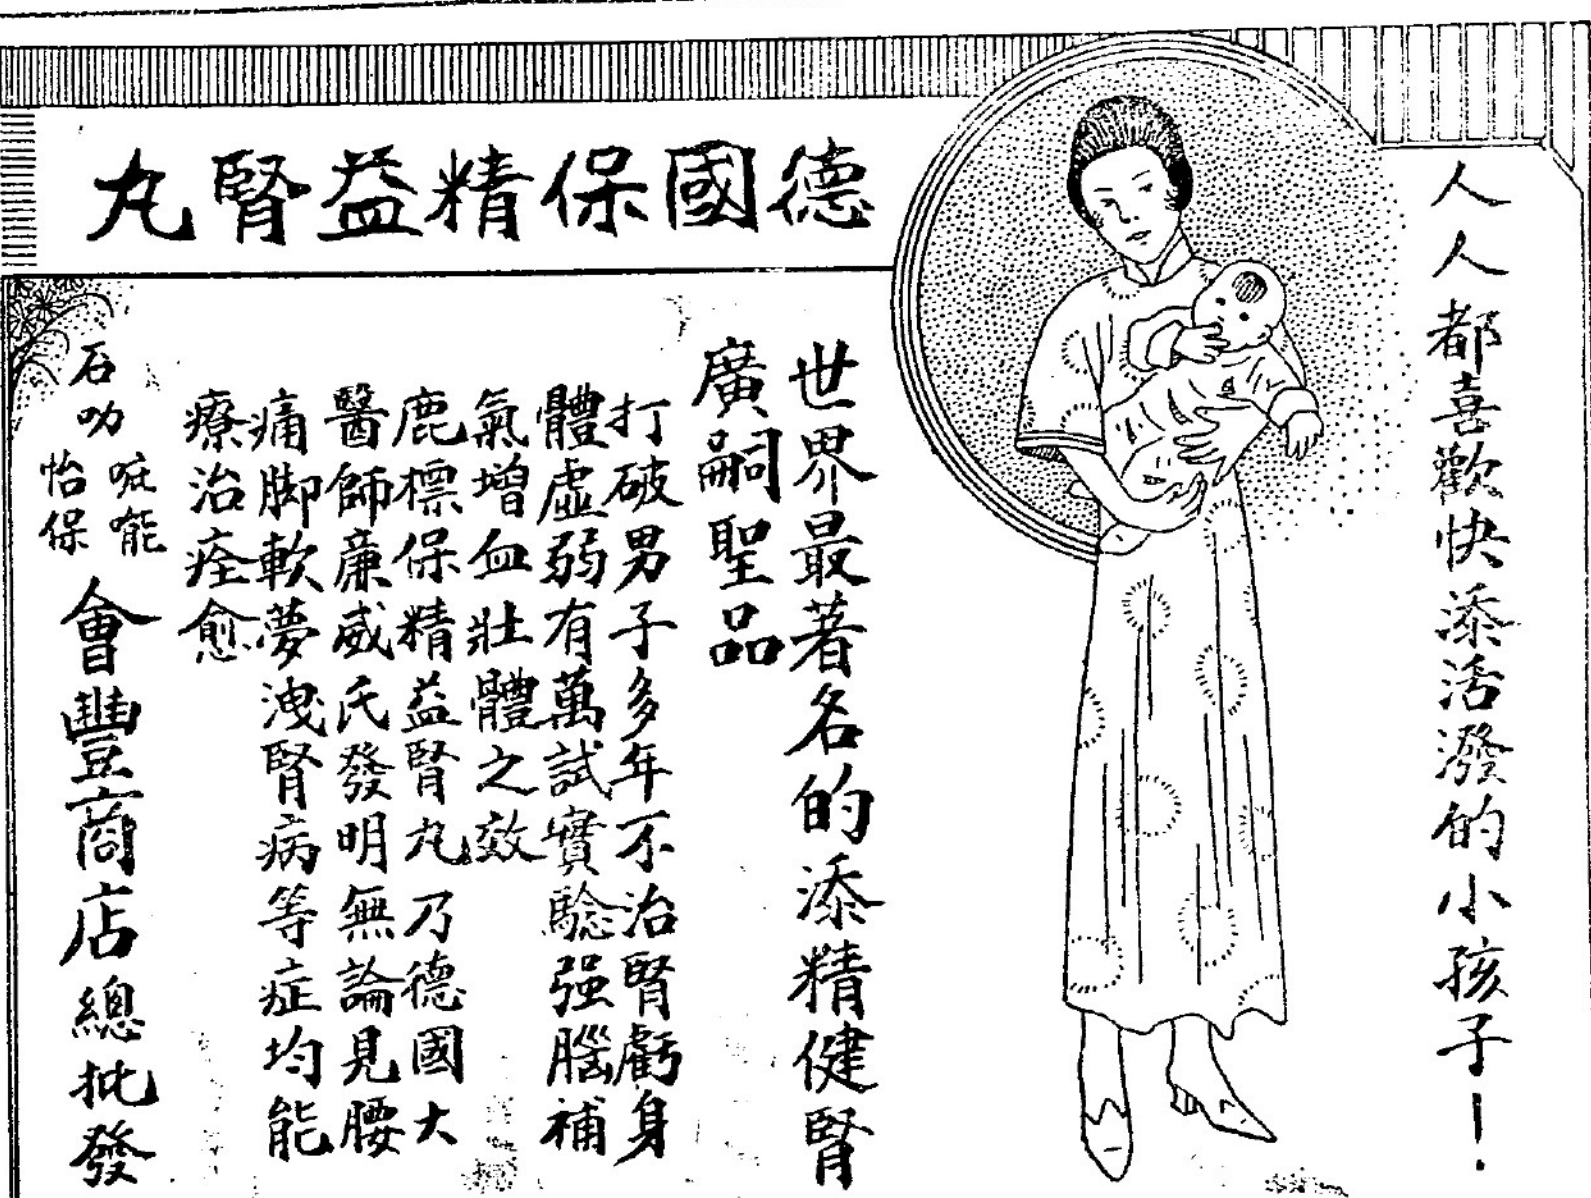 人人都喜歡快添活潑的小孩子！
德國保精益腎丸
世界最著名的添精健腎
廣嗣聖品
打破男子多年不治腎虧身
體虛弱有萬試實驗强腦補
氣增血壯體之效
鹿標保精益腎丸乃德國大
醫師廉威氏發明無論見腰
痛脚軟夢洩腎病等症均能
療治痊愈
石叻
怡保
會豐商店總批發